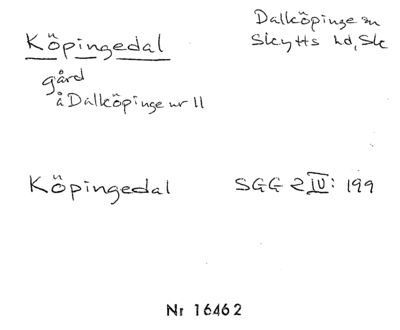 Köpingedal
Dalköpinge sn
Skytts hd, Sk
gård
å Dalköpinge nr 11
Köpingedal
SGG 2 IV: 199
Nr 16462